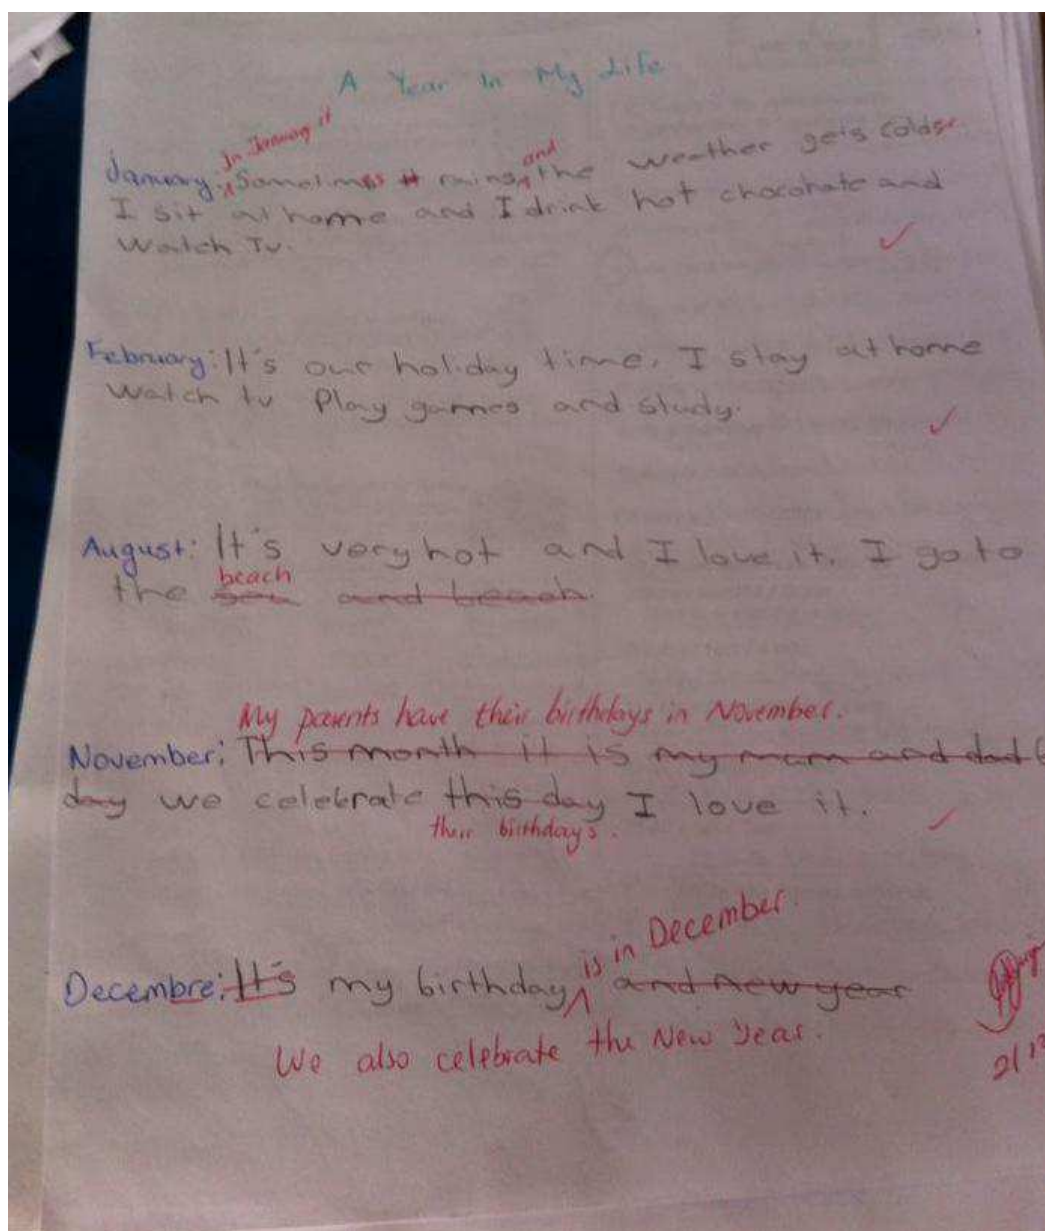 A Year In My Life
In January it
and
January: Sometimes rains, the weather gets colds
I sit at home and I drink hot chocolate and
Watch Tv.
February: It's our holiday time. I stay at home
Watch tv Play games and study.
August: It's very hot and I love it. I go to
beach
the sea and beach.
My parents have their birthdays in November.
November: This month it is my mum and dad
day we celebrate this day I love it.
their birthdays.
is in December.
Decembre: It's my birthday and new year
We also celebrate the New Year.